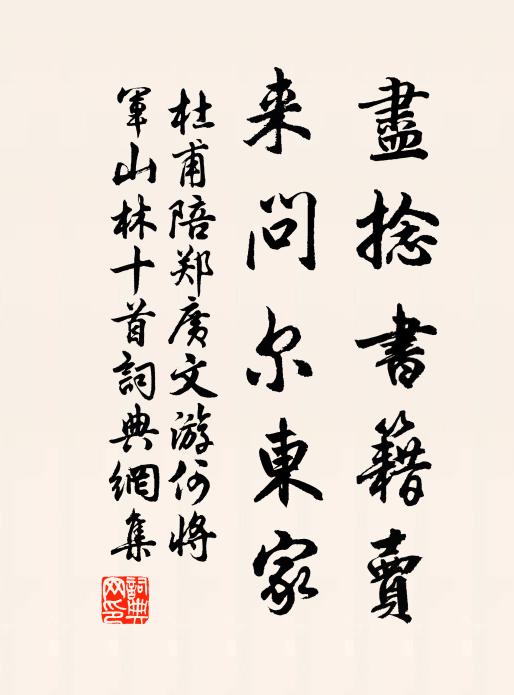 盡捻書籍賣
来問尔東家
杜甫陪郑廣文游何將
軍山林十首詞典網集
詞典网印